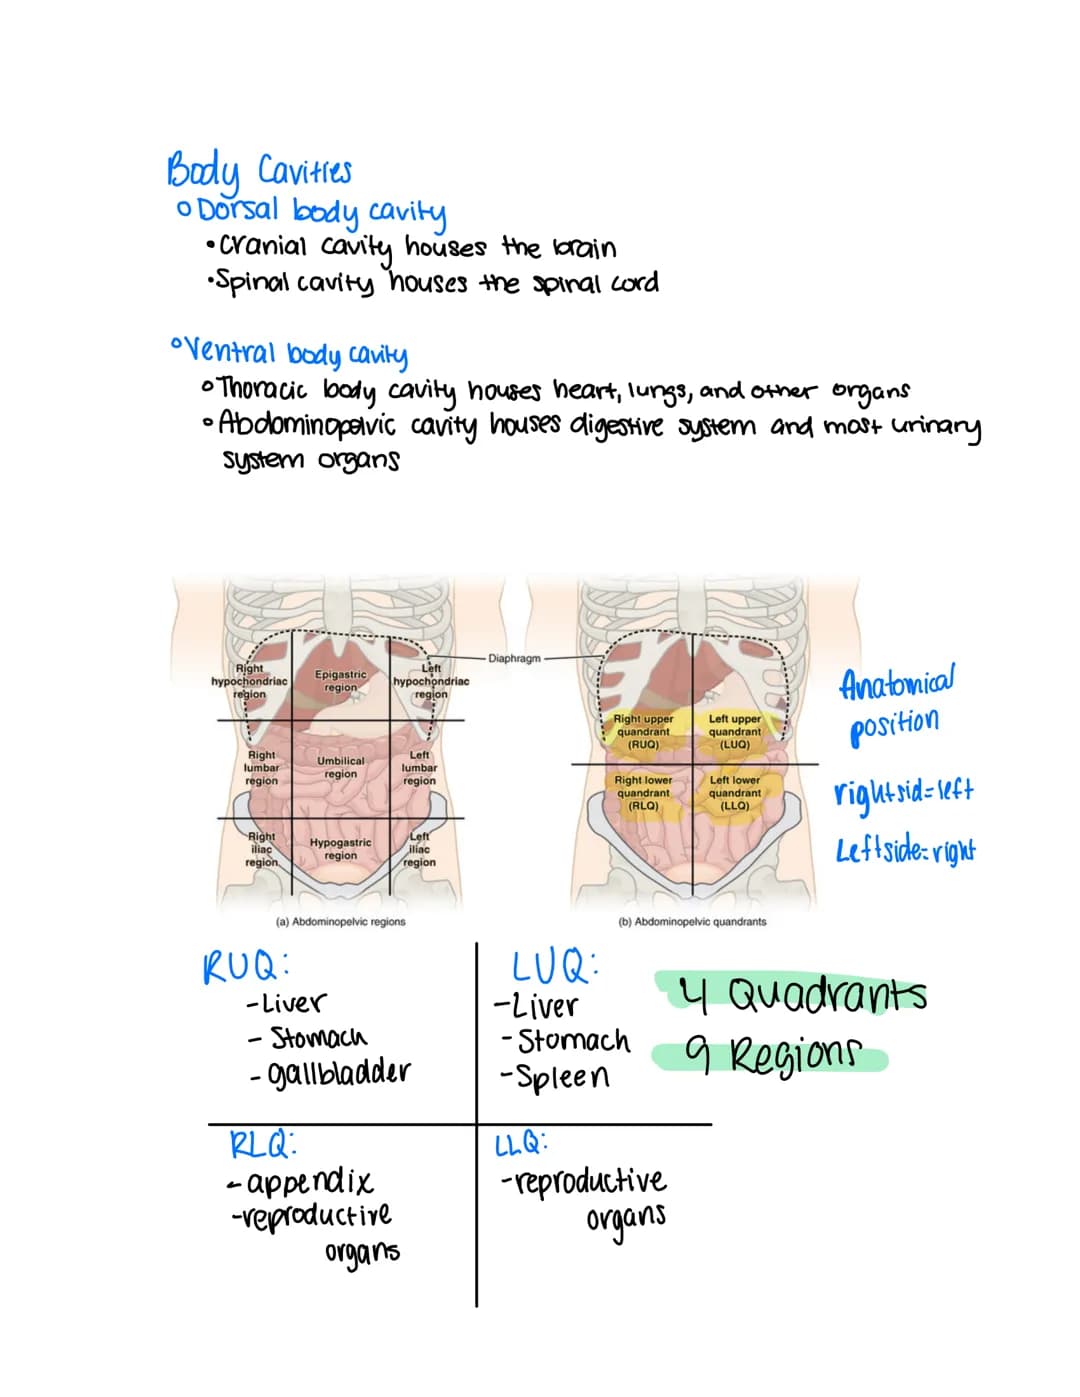 Body Cavities
Dorsal body cavity
• Cranial cavity houses the brain
• Spinal cavity houses the spinal cord
Ventral body cavity
Thoracic body cavity houses heart, lungs, and other organs
Abdominopelvic cavity houses digestive system and most urinary
system organs
Right
hypochondriac
region
Epigastric
region
Left
hypochondriac
region
Right
lumbar
region
Umbilical
region
Left
lumbar
region
Right
iliac
region
Hypogastric
region
Left
iliac
region
(a) Abdominopelvic regions
Diaphragm
Right upper
quandrant
(RUQ)
Left upper
quandrant
(LUQ)
Right lower
quandrant
(RLQ)
Left lower
quandrant
(LLQ)
(b) Abdominopelvic quandrants
Anatomical
position
right sid=left
Left side=right
RUQ:
-Liver
- Stomach
- gallbladder
LUQ:
-Liver
- Stomach
-Spleen
4 Quadrants
9 Regions
RLQ:
- appendix
-reproductive
organs
LLQ:
-reproductive
organs